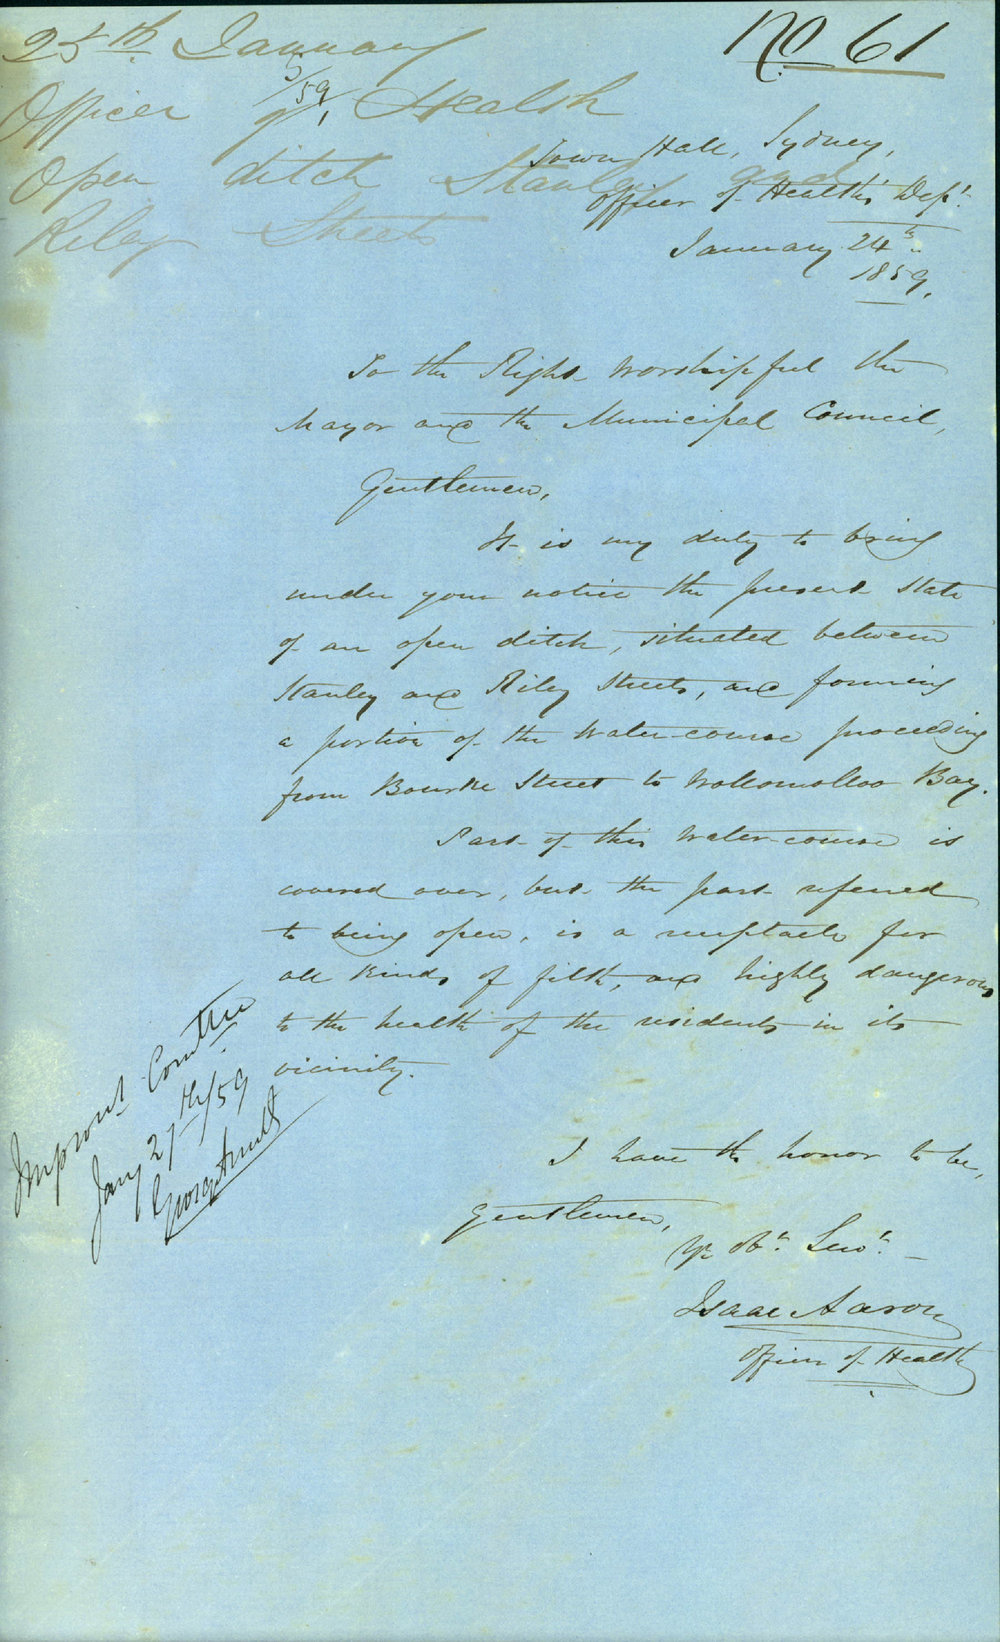 No 61
25th January
5/59,
Officer of Health
Open ditch Stanley and
Riley Streets
Town Hall, Sydney,
Officer of Health's Dept.
January 24th
1859,
To the Right Worshipful the
Mayor and the Municipal Council,
Gentlemen,
It is my duty to bring
under your notice the present State
of an open ditch, situated between
Stanley and Riley Streets, and forming
a portion of the Water-course proceeding
from Bourke Street to Wollomolloo Bay.
Part of this Water-course is
covered over, but the part referred
to being open, is a receptacle for
all kinds of filth, and highly dangerous
to the health of the residents in its
vicinity.
I have the honor to be,
Gentlemen,
Yr Obt. Servt.
Isaac Aaron
Officer of Health
Improvt Comttee
Jany 27th/59
George Smith